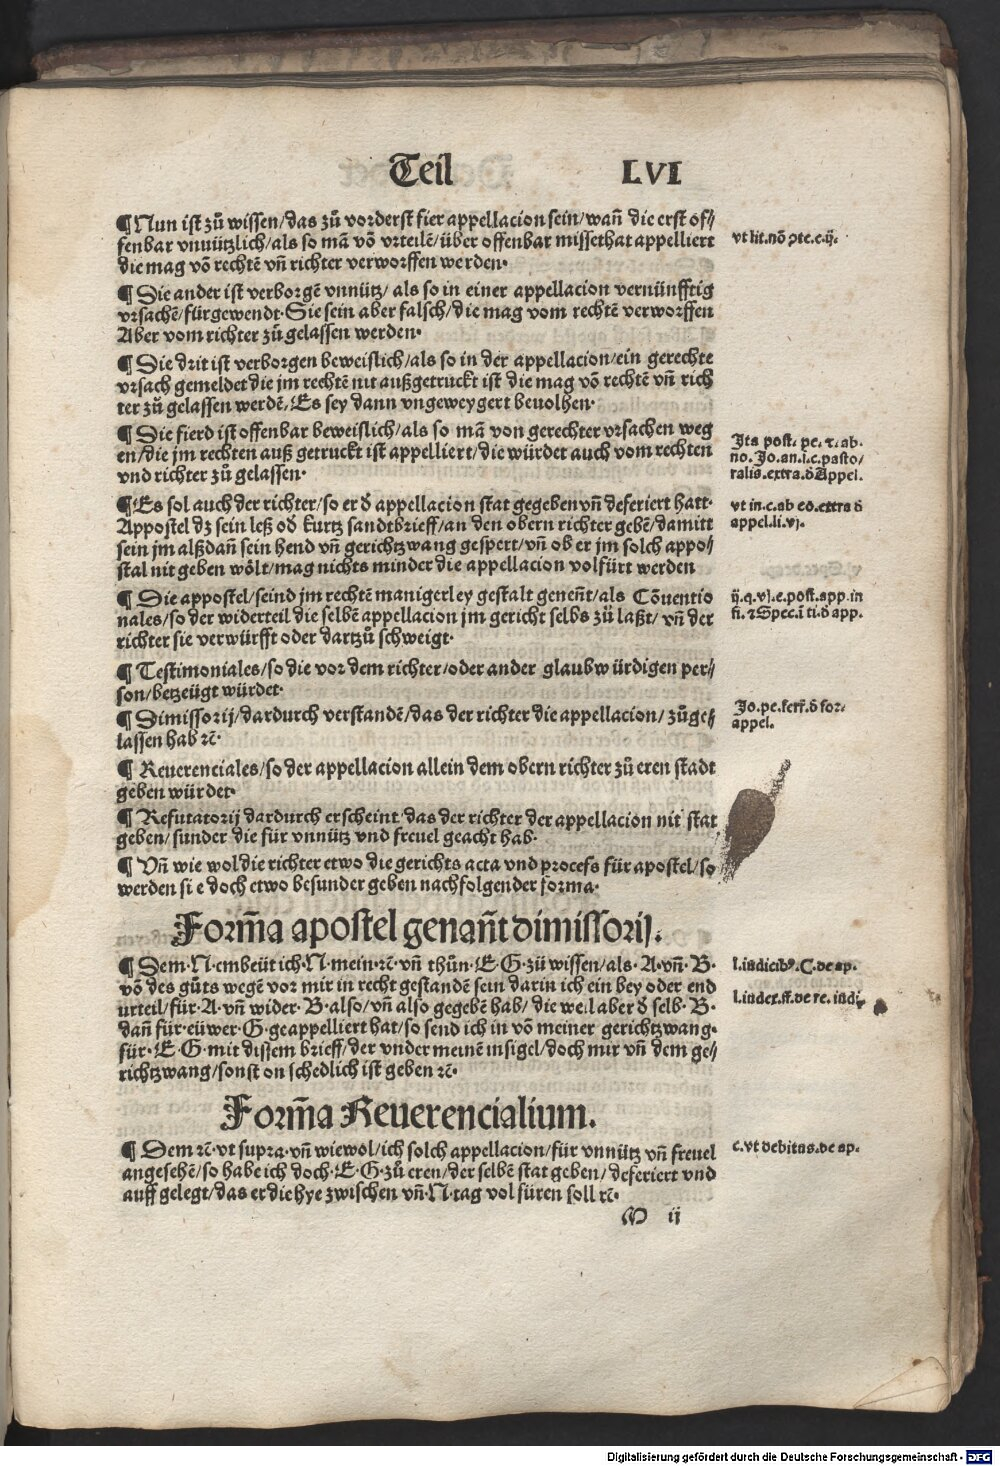 Teil LVI
¶ Nun ist zů wissen/das zů vorderst fier appellacion sein/wañ die erst of⸗
fenbar vnnützlich/als so mā võ vrteilē/über offenbar missethat appelliert
die mag võ rechtē vñ richter verworffen werden·
vt lit.nō ꝯte.c.ij.
¶ Die ander ist verborgē vnnütz/ als so in einer appellacion vernünfftig
vrsachē/fürgewendt·Sie sein aber falsch/die mag vom rechtē verworffen
Aber vom richter zů gelassen werden·
¶ Die drit ist verborgen beweislich/als so in der appellacion/ein gerechte
vrsach gemeldet die jm rechtē nit außgetruckt ist die mag võ rechtē vñ rich
ter zů gelassen werdē/Es sey dann vngeweygert beuolhen·
¶ Die fierd ist offenbar beweislich/als so mā von gerechter vrsachen weg
en/die jm rechten auß getruckt ist appelliert/die würdet auch vom rechten
vnd richter zů gelassen·
Ita post. pe. ⁊. ab.
no. Jo.an.i.c.pasto/
ralis.extra.ð Appel.
¶ Es sol auch der richter/so er ð appellacion stat gegeben vñ deferiert hatt·
Appostel dz sein leß oð kurtz sandtbrieff/an den obern richter gebē/damitt
sein jm alßdañ sein hend vñ gerichtzwang gespert/vñ ob er jm solch appo⸗
stal nit geben wölt/mag nichts minder die appellacion volfürt werden
vt in.c.ab eo.extra ð
appel.li.vj.
¶ Die appostel/seind jm rechtē manigerley gestalt geneñt/als Cōuentio
nales/so der widerteil die selbē appellacion jm gericht selbs zů laßt/ vñ der
richter sie verwürfft oder dartzů schweigt·
ij.q.vj.e.post.app.in
fi. ⁊ Spec.ī ti.ð app.
¶ Testimoniales/so die vor dem richter/oder ander glaubw ürdigen per⸗
son/betzeügt würdet·
¶ Dimissorij/dardurch verstandē/das der richter die appellacion/ zůge⸗
lassen hab ⁊c̄·
Jo.pe.ferr.ð for.
appel.
¶ Reuerenciales/so der appellacion allein dem obern richter zů eren stadt
geben würdet·
¶ Refutatorij dardurch erscheint das der richter der appellacion nit stat
geben/ sunder die für vnnütz vnd freuel geacht hab·
¶ Vñ wie wol die richter etwo die gerichts acta vnd procefs für apostel/so
werden si e doch etwo besunder geben nachfolgender forma·
Form̄a apostel genañt dimissorij.
¶ Dem·N·embeüt ich·N·mein·⁊c̄·vñ thůn·E·G·zů wissen/als·A·vñ·B·
võ des gůts wegē vor mir in recht gestandē sein darin ich ein bey oder end
urteil/für·A·vñ wider·B·also/vñ also gegebē hab/ die weil aber ð selb·B·
dañ für·eüwer·G·geappelliert hat/so send ich in võ meiner gerichtzwang·
für·E·G·mit dissem brieff/der vnder meinē insigel/doch mir vñ dem ge⸗
richtzwang/sonst on schedlich ist geben ⁊c̄·
l.iudicibꝰ.C.de ap.
l.iudex.ff.de re.iudi
Form̄a Reuerencialium.
¶ Dem ⁊c̄·vt supra·vñ wiewol/ich solch appellacion/für vnnütz vñ freuel
angesehē/so habe ich doch·E·G·zů eren/der selbē stat geben/ deferiert vnd
auff gelegt/das er die hye zwischen vñ·N·tag vol füren soll ⁊c̄·
c.vt debitus.de ap.
M ij
Digitalisierung gefördert durch die Deutsche Forschungsgemeinschaft - DFG